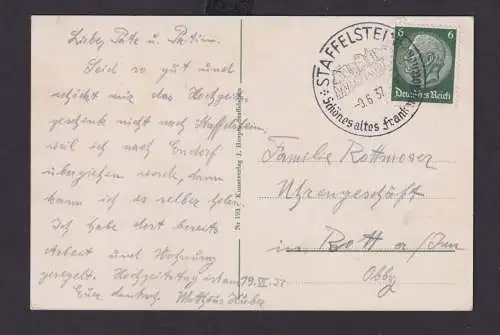 Lieber Pate u. Patin.
Seid so gut und
schickt mir das Hochzeits-
geschenk nicht nach Staffelstein,
weil ich nach Endorf
übersiehen werde, dann
kann ich es selber holen.
Ich habe dort bereits
Arbeit und Wohnung
geregelt. Hochzeitstag ist am 19.VI.37
Euer dankb. Matthäus Huber
Nr 193 Kunstverlag J.
STAFFELSTEIN
-9.6.37
Schönes altes Frank
6 6
Deutsches Reich
Familie Rottmoser
Uhrengeschäft
in Rott a/Inn
Obby